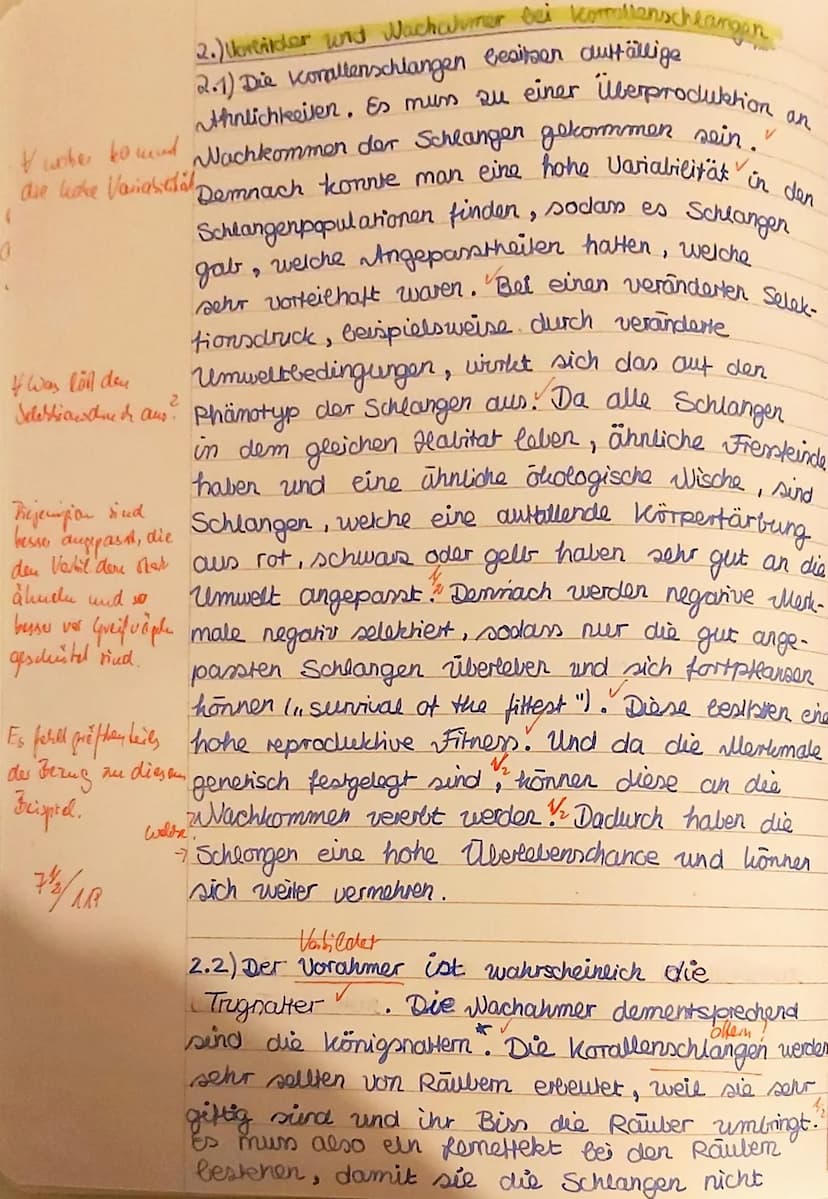 2.) Vorbilder und Nachahmer bei Korrallenschlangen
2.1) Die Korallenschlangen besitzen auffällige
Ähnlichkeiten. Es muss zu einer Überproduktion an
Nachkommen der Schlangen gekommen sein.
Demnach konnte man eine hohe Variabilität in den
Schlangenpopulationen finden, sodass es Schlangen
gab, welche Angepasstheiten hatten, welche
sehr vorteilhaft waren. Bei einen veränderten Selek-
tionsdruck, beispielsweise durch veränderte
Umweltbedingungen, wirkt sich das auf den
Phänotyp der Schlangen aus. Da alle Schlangen
in dem gleichen Habitat leben, ähnliche Fressfeinde
haben und eine ähnliche ökologische Nische, sind
Schlangen, welche eine auffallende Körperfärbung
aus rot, schwarz oder gelb haben sehr gut an die
Umwelt angepasst. Demnach werden negative Merk-
male negativ selektiert, sodass nur die gut ange-
passten Schlangen überleben und sich fortpflanzen
können („survival of the fittest"). Diese besitzen eine
hohe reproduktive Fitness. Und da die Merkmale
genetisch festgelegt sind, können diese an die
Nachkommen vererbt werden. Dadurch haben die
Schlangen eine hohe Überlebenschance und können
sich weiter vermehren.
2.2) Der Vorahmer ist wahrscheinlich die
Trugnatter. Die Nachahmer dementsprechend
sind die Königsnattern*. Die Korallenschlangen werden
sehr sellten von Räubern erbeutet, weil sie sehr
giftig sind und ihr Biss die Räuber umbringt.
Es muss also ein Lerneffekt bei den Räubern
bestehen, damit sie die Schlangen nicht
woher kommt
die hohe Variabilität
Was löst den
Selektionsdruck aus?
Diejenigen sind
besser angepasst, die
den Vorbildern stark
ähneln und so
besser vor Greifvögeln
geschützt sind.
Es fehlt größtenteils
der Bezug zu diesem
Beispiel.
welche?
7½/11P
Vorbilder
½
½
½
½